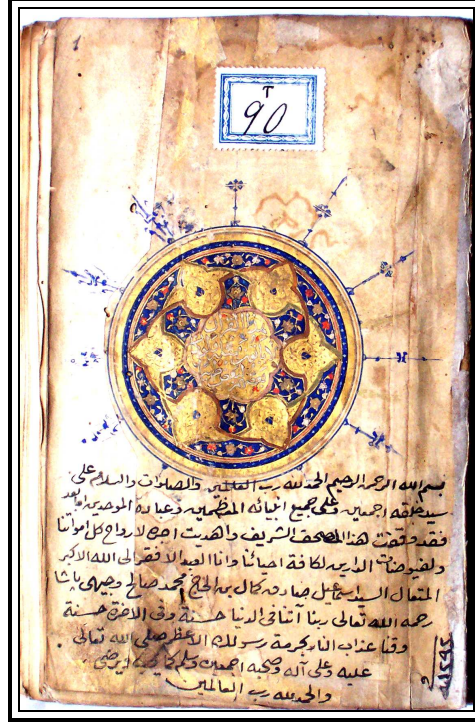 1
T
90
بسم الله الرحمن الرحيم الحمد لله رب العالمين والصلوات والسلام على
سيد خلقه اجمعين وعلى جميع انبيائه المعظمين وعباده الموحدين اما بعد
فقد وقفت هذا المصحف الشريف واهديت اجره لارواح كل امواتنا
ولفيوضات الدارين لكافة احيائنا وانا العبد الافقر الى الله الاكبر
المتعال السيد اسماعيل صادق كمال بن الحاج محمد صالح وجيهى پاشا
رحمه الله تعالى ربنا آتنا فى الدنيا حسنة وفى الآخرة حسنة
وقنا عذاب النار بحرمة رسولك الاعظم صلى الله تعالى
عليه وعلى آله وصحبه اجمعين وسلم كما يحب ويرضى
والحمد لله رب العالمين